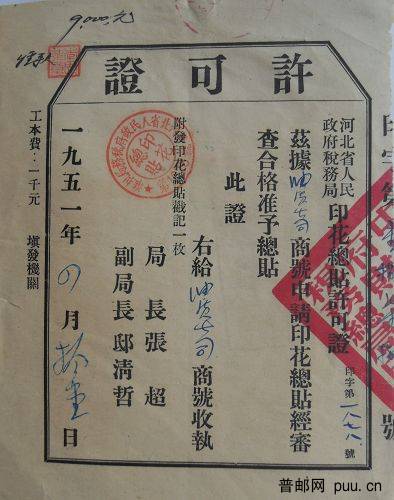 9,000,元
許可證
河北省人民政府稅務局
印花總貼許可證
印字第一八七八號
茲據油貨公司商號申請印花總貼經審
查合格准予總貼
此證
右給油貨公司商號收執
附發印花總貼戳記一枚
局長張超
副局長邸清哲
一九五一年四月拾壹日
工本費：一千元
塡發機關
普邮网 puu.cn